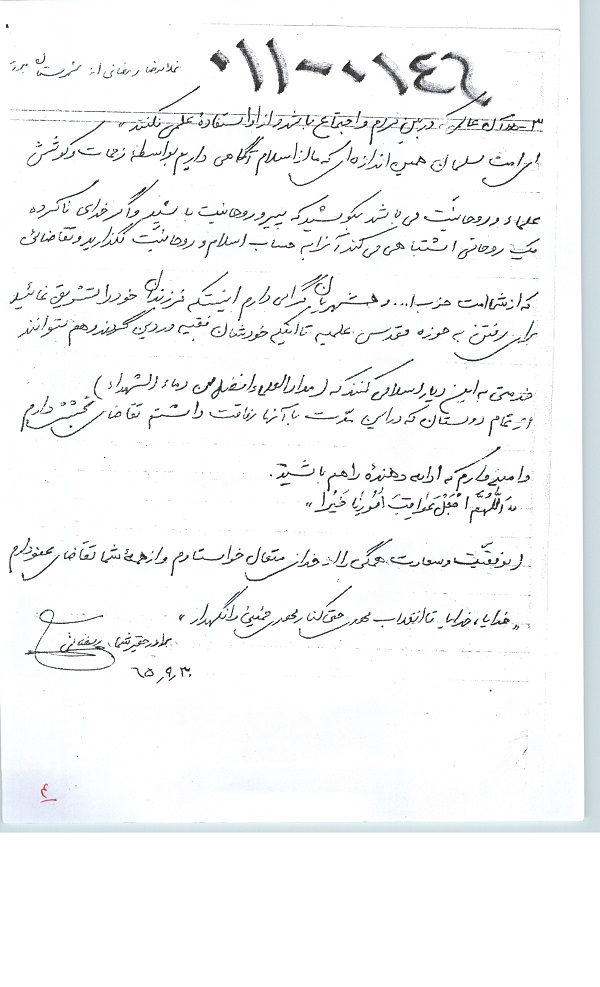 غلامرضا رمضانی از شهرستان
۰۱۱-۰۱۴۶
۳- عالمی که در بین مردم و اجتماع باشد و از او استفادهٔ علمی نکنند»
ای امت مسلمان همین اندازه‌ای که ما از اسلام آگاهی داریم بواسطهٔ زحمات و کوشش
علماء و روحانیّت می باشد بکوشید که پیرو روحانیت باشید و اگر خدای ناکرده
یک روحانی اشتباهی می‌کند آنرا به حساب اسلام و روحانیّت نگذارید و تقاضائی
که از شما امت حزب ا... و همشهریان گرامی دارم اینستکه فرزندان خود را تشویق نمائید
برای رفتن به حوزه مقدس علمیه تا اینکه خودشان فقیه در دین گردند و هم بتوانند
خدمتی به این دیار اسلامی کنند که (مداد العلماء افضل من دماء الشهداء)
از تمام دوستان که در این مدت با آنها رفاقت داشتم تقاضای بخشش دارم
و امیدوارم که ادامه دهندهٔ راهم باشید.
«اَللّهُمَّ اجْعَلْ عَواقِبَ اُمُورِنا خَیْرا»
توفیقیّت و سعادت همگی را از خدای متعال خواستارم و از همهٔ شما تقاضای عفو دارم
«خدایا، خدایا تا انقلاب مهدی حتی کنار مهدی خمینی را نگهدار»
برادر حقیر شما رمضانی
۶۵٫۹٫۳۰
۴